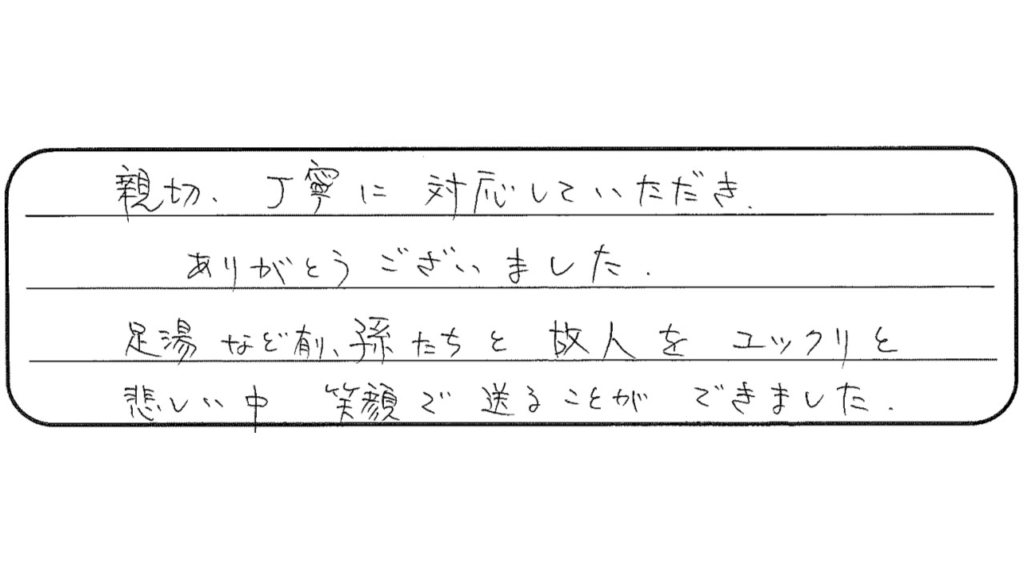 親切、丁寧に 対応していただき.
ありがとうございました.
足湯など有り、孫たちと 故人を ユックリと
悲しい中 笑顔で 送ることが できました.